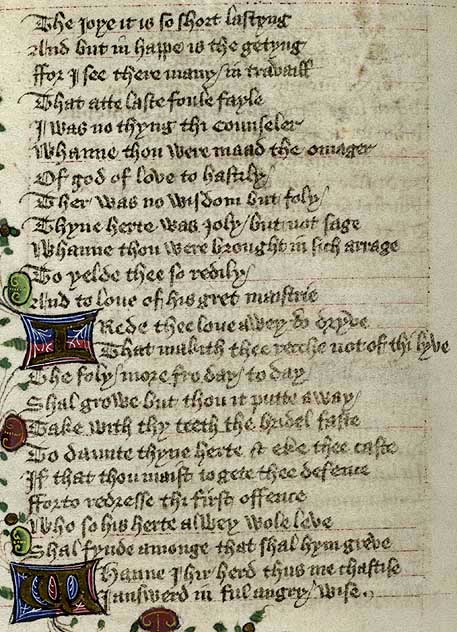 The ioye it is so short lastyng
And but in happe is the getyng
ffor I see there many / in travaill
That atte laste foule fayle
I was no thyng thi counseler
Whanne thou were maad the omager
Of god of love to hastily /
Ther was no wisdom but foly /
Thyne herte was ioly / but not sage
Whanne thou were brought in sich arrage
To yelde thee so redily /
And to loue of his gret maistrie
I Rede thee loue awey to dryve
That makith thee recche not of thi lyve
The foly / more fro day / to day /
Shal growe but thou it putte away /
Take with thy teeth the bridel faste
To daunte thyne herte & eke thee caste
If that thou maist to gete thee defence
fforto redresse thi first offence
Who so his herte alwey wole leve
Shal fynde amonge that shal hym greve
Whanne I hir herd thus me chastise
I answerd in ful angry / wise .